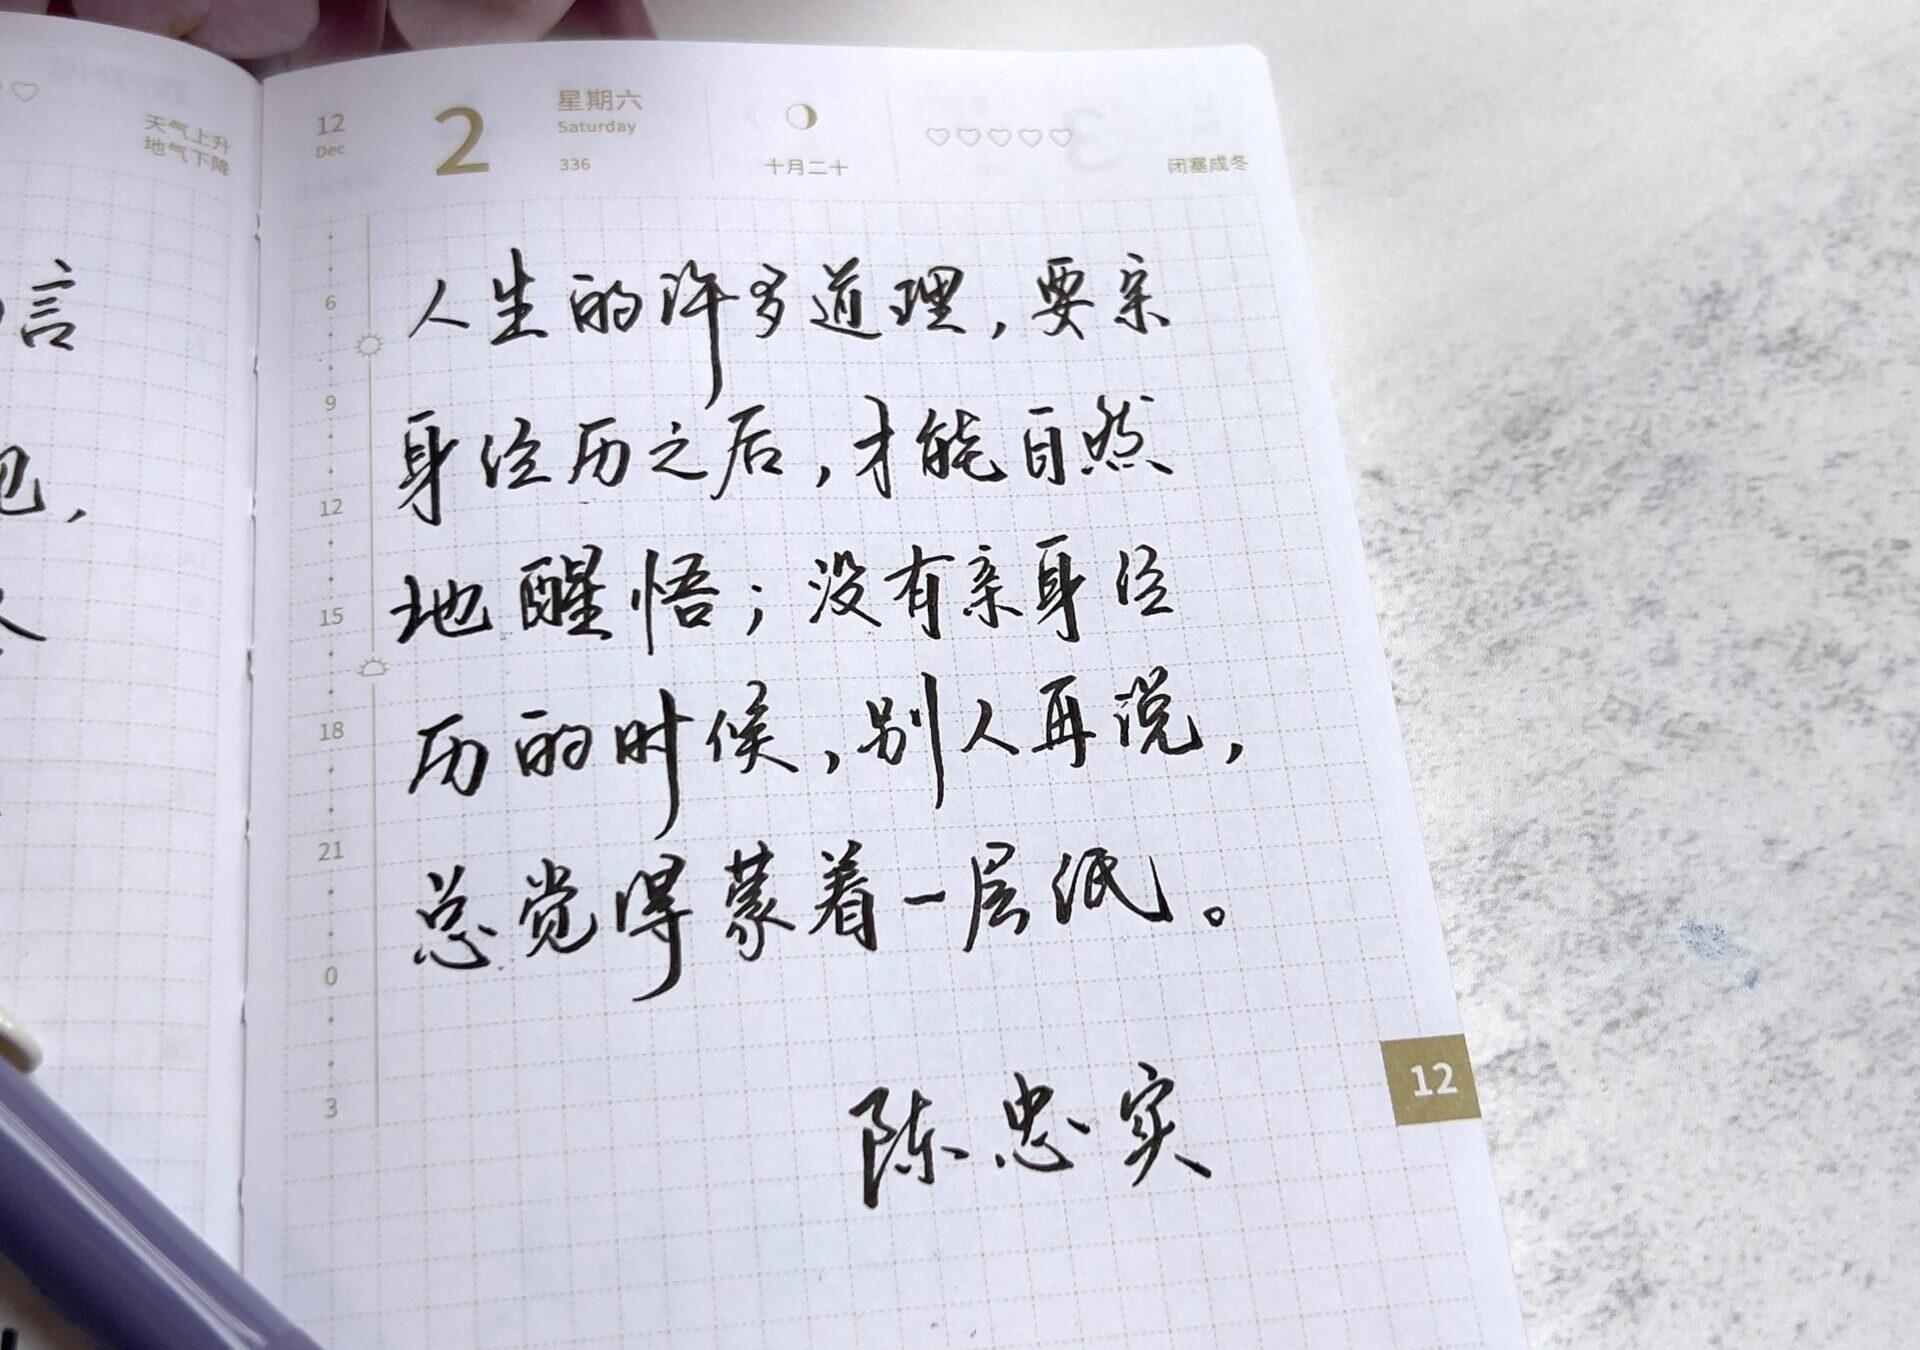 天气上升
地气下降
言
12
Dec
2
星期六
Saturday
336
十月二十
闭塞成冬
6
9
12
15
18
21
0
3
人生的许多道理，要亲
身经历之后，才能自然
地醒悟；没有亲身经
历的时候，别人再说，
总觉得蒙着一层纸。
陈忠实
12